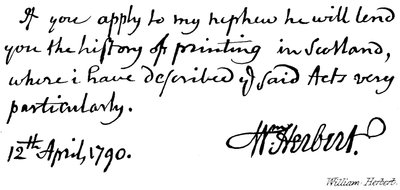 If you apply to my nephew he will lend
you the history of printing in Scotland,
where i have described yᵉ said Acts very
particularly.
12th April, 1790. Wm Herbert.
William Herbert.